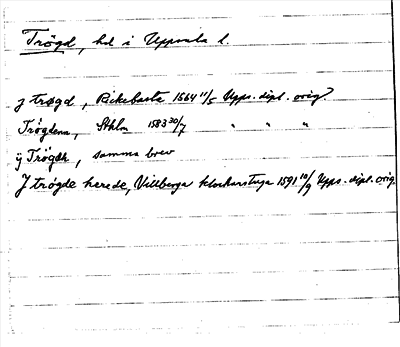 Trögd, hd i Uppsala l.
J trögd, Rickebasta 1564 11/5 Upps. dipl. orig.
Trögdena, Sthlm 1583 30/7 " " "
ÿ Trögdh, samma brev
J trögde herede, Villberga klockarstuga 1591 10/9 Upps. dipl. orig.